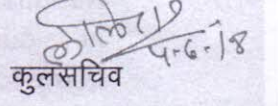 ५-6-18
कुलसचिव